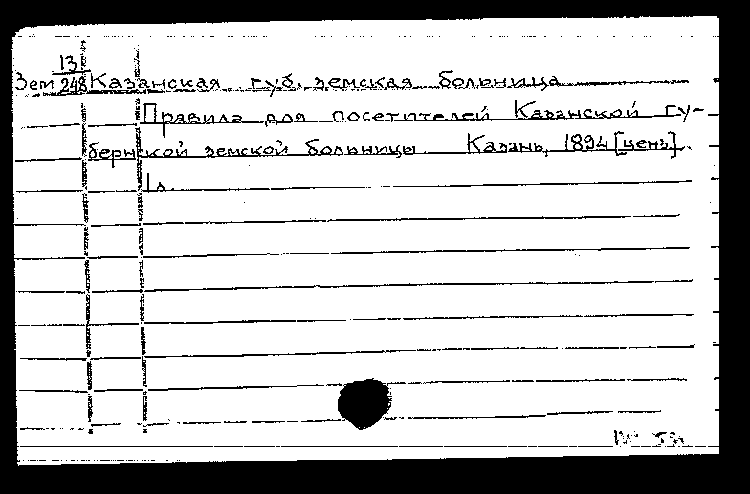 13
Зем 248 Казанская губ. земская больница
Правила для посетителей Казанской гу-
бернской земской больницы. Казань, 1894 [ценз].
1 л.